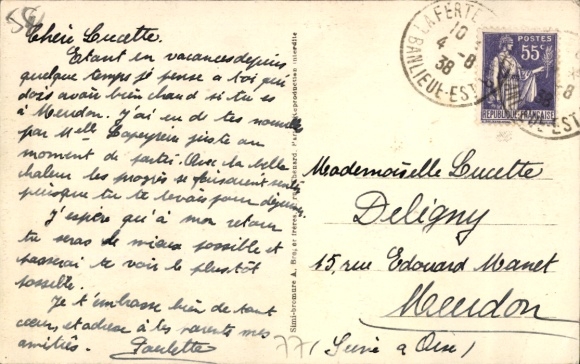 Chère Lucette.
Etant en vacances depuis
quelque temps je pense a toi qui
dois avoir bien chaud si tu es
à Meudon. J'ai eu de tes nouvelles
par Melle juste au
moment de partir. Avec la belle
chaleur les progrès se faisaient
puisque tu te levais pour déjeuner.
J'espère qu'à mon retour
tu seras le mieux possible et
passerai te voir le plustôt
possible.
Je t'embrasse bien de tout
cœur et adresse à tes parents mes
amitiés. Paulette
Simi-bromure A. Reproduction interdite
LA FERTE
10
4 -8
38
BANLIEUE-EST
POSTES
55c
REPUBLIQUE FRANÇAISE
Mademoiselle Lucette
Deligny
15, rue Edouard Manet
Meudon
(Seine & Oise)
77